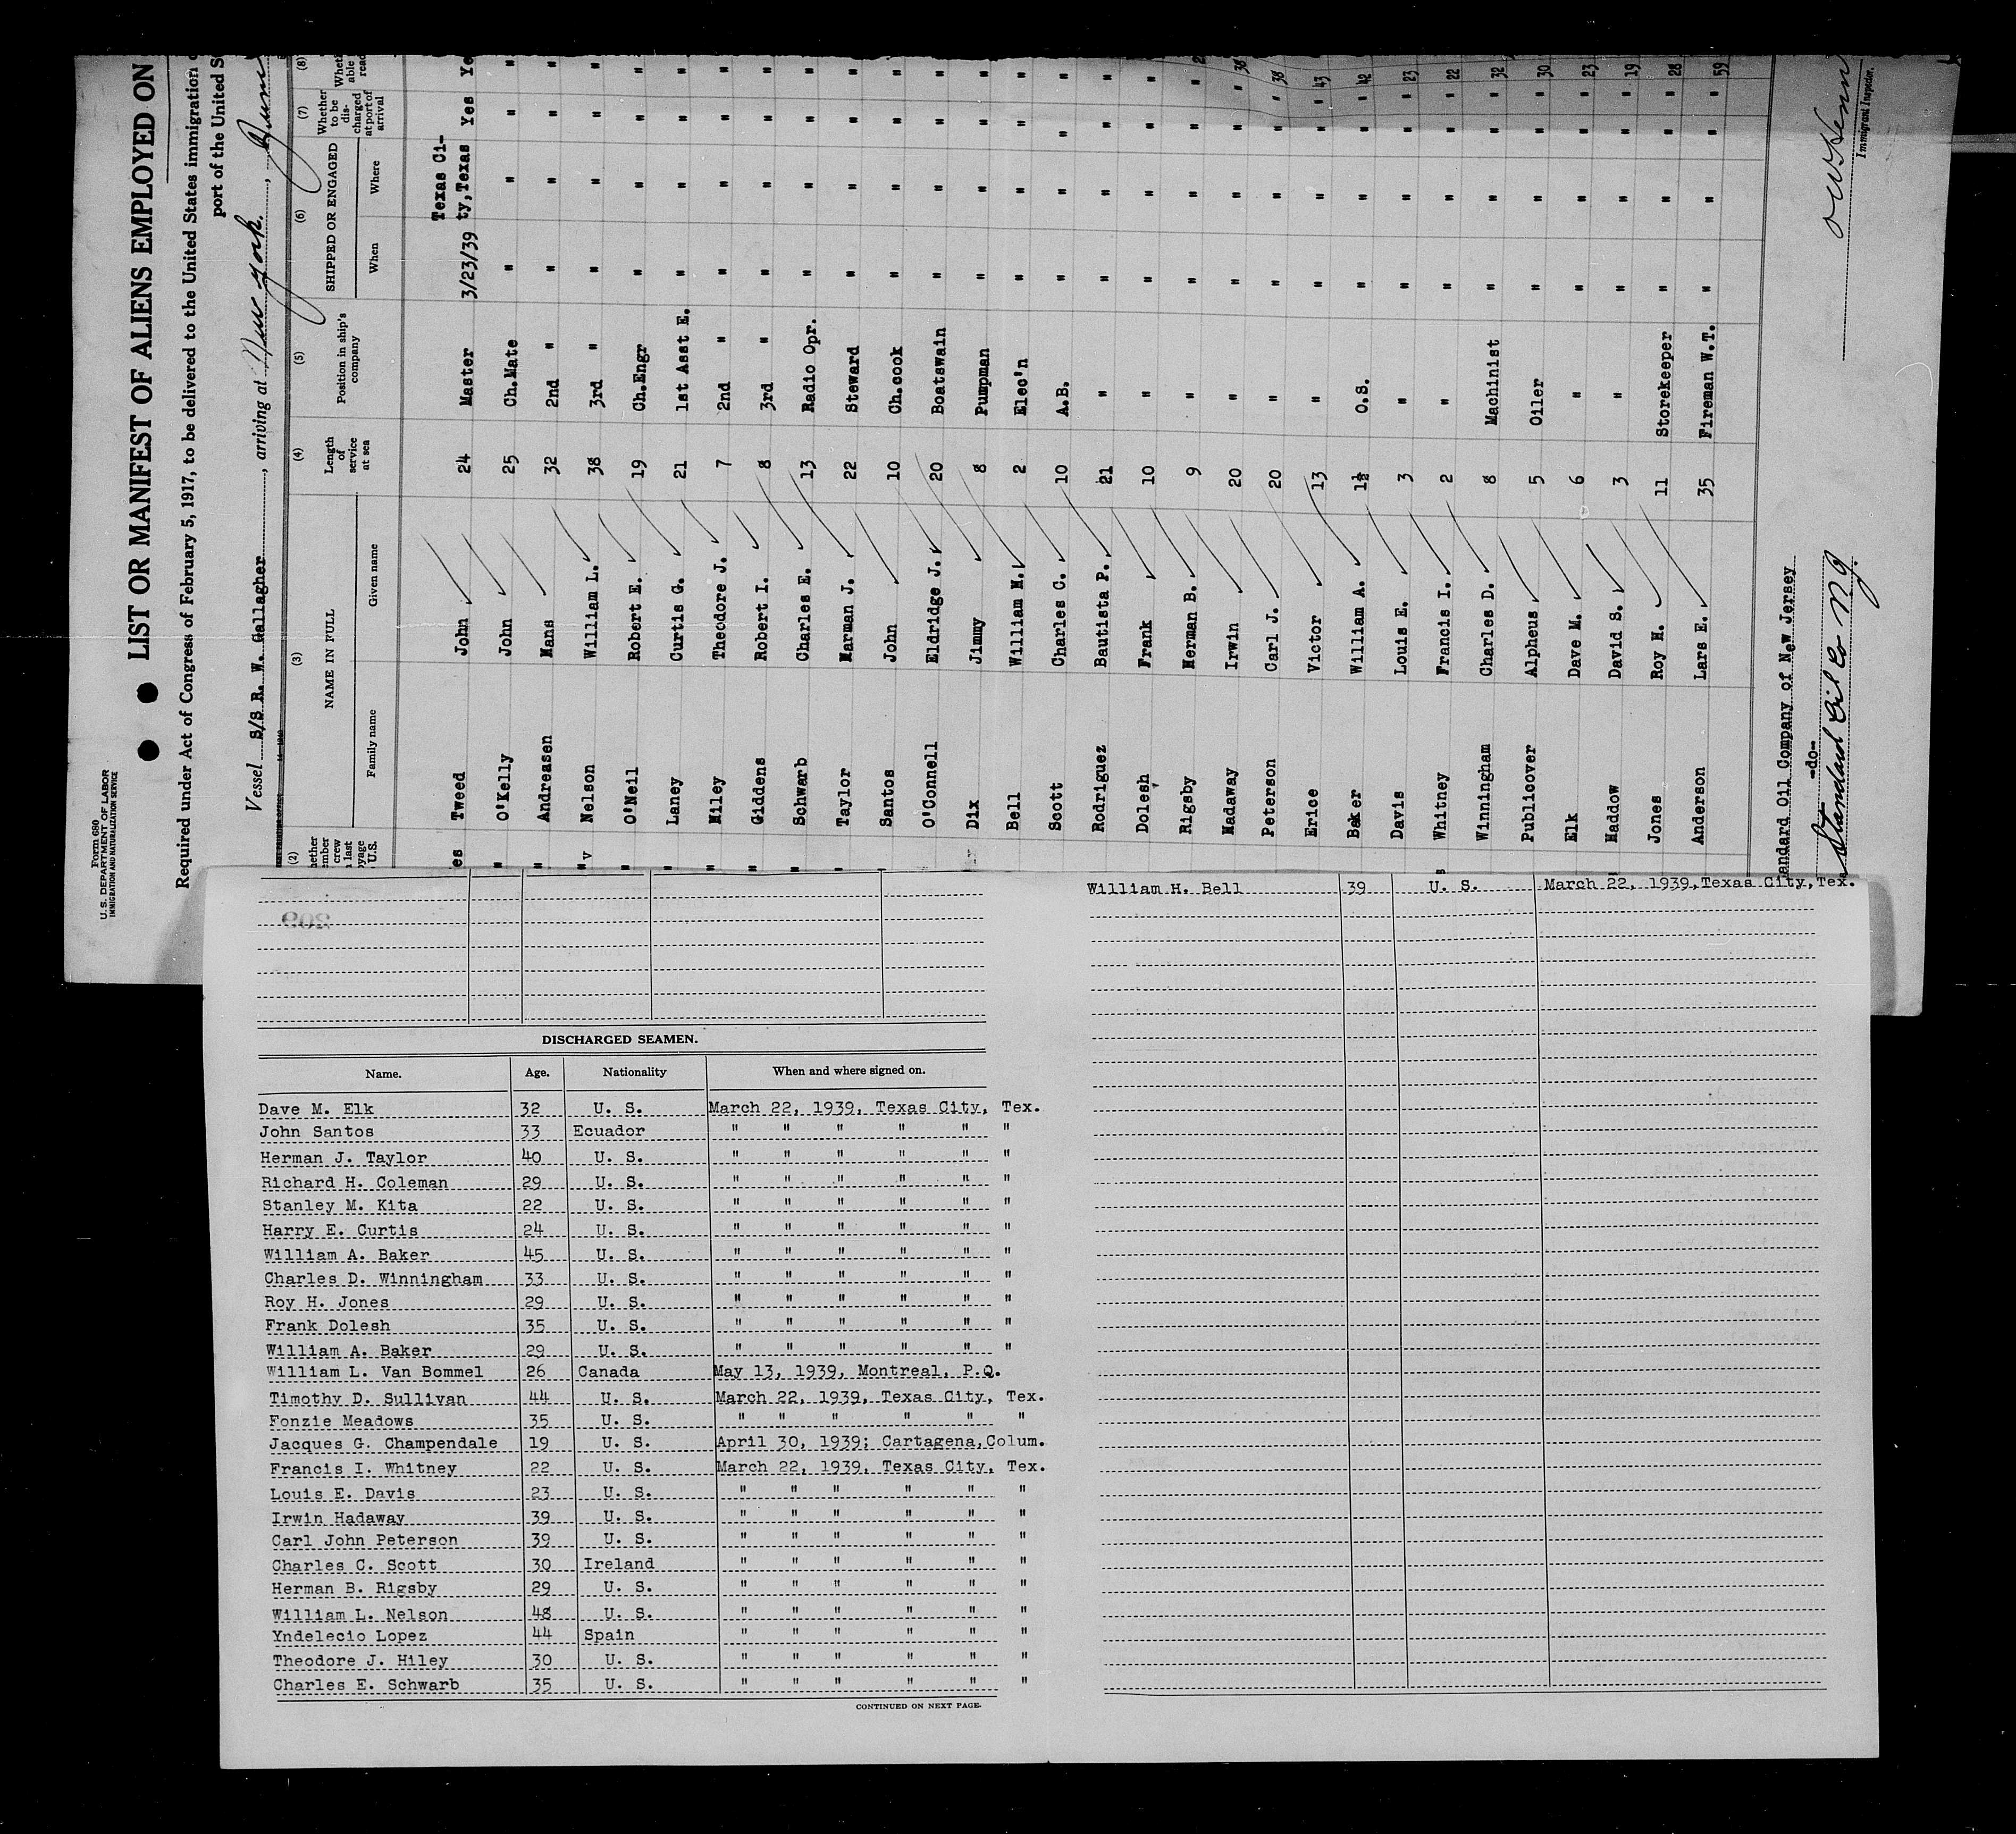 Form 680
U. S. DEPARTMENT OF LABOR
IMMIGRATION AND NATURALIZATION SERVICE
LIST OR MANIFEST OF ALIENS EMPLOYED ON
Required under Act of Congress of February 5, 1917, to be delivered to the United States immigration
port of the United
Vessel S/S R. W. Gallagher, arriving at New York,
(2) (3) (4) (5) (6) (7) (8)
NAME IN FULL Length of service at sea Position in ship's company SHIPPED OR ENGAGED Whether to be discharged at port of arrival
Family name Given name When Where
Texas Ci-
es Tweed John 24 Master 3/23/39 ty,Texas Yes Ye
" O'Kelly John 25 Ch.Mate " " " "
" Andreasen Hans 32 2nd " " " " "
" Nelson William L. 38 3rd " " " " "
" O'Neil Robert E. 19 Ch.Engr " " " "
" Laney Curtis G. 21 1st Asst E. " " " "
" Hiley Theodore J. 7 2nd " " " " "
" Giddens Robert I. 8 3rd " " " " "
" Schwarb Charles E. 13 Radio Opr. " " " "
" Taylor Harman J. 22 Steward " " " "
Santos John 10 Ch.cook " " " "
O'Connell Eldridge J. 20 Boatswain " " " "
Dix Jimmy 8 Pumpman " " " "
Bell William H. 2 Elec'n " " " "
Scott Charles C. 10 A.B. " " " "
Rodriguez Bautista P. 21 " " " " "
Dolesh Frank 10 " " " " "
Rigsby Herman B. 9 " " " " "
Hadaway Irwin 20 " " " " " 38
Peterson Carl J. 20 " " " " " 38
Erice Victor 13 " " " " " 43
Baker William A. 1½ O.S. " " " " 42
Davis Louis E. 3 " " " " " 23
Whitney Francis I. 2 " " " " " 22
Winningham Charles D. 8 Machinist " " " " 32
Publicover Alpheus 5 Oiler " " " " 30
Elk Dave M. 6 " " " " " 23
Haddow David S. 3 " " " " " 19
Jones Roy H. 11 Storekeeper " " " " 28
Anderson Lars E. 35 Fireman W.T. " " " " 59
andard Oil Company of New Jersey
-do-
Standard Oil Co N.J.
Immigrant Inspector.
DISCHARGED SEAMEN.
Name. Age. Nationality When and where signed on.
Dave M. Elk 32 U. S. March 22, 1939, Texas City, Tex.
John Santos 33 Ecuador " " " " " "
Herman J. Taylor 40 U. S. " " " " " "
Richard H. Coleman 29 U. S. " " " " " "
Stanley M. Kita 22 U. S. " " " " " "
Harry E. Curtis 24 U. S. " " " " " "
William A. Baker 45 U. S. " " " " " "
Charles D. Winningham 33 U. S. " " " " " "
Roy H. Jones 29 U. S. " " " " " "
Frank Dolesh 35 U. S. " " " " " "
William A. Baker 29 U. S. " " " " " "
William L. Van Bommel 26 Canada May 13, 1939, Montreal, P.Q.
Timothy D. Sullivan 44 U. S. March 22, 1939, Texas City, Tex.
Fonzie Meadows 35 U. S. " " " " " "
Jacques G. Champendale 19 U. S. April 30, 1939; Cartagena,Colum.
Francis I. Whitney 22 U. S. March 22, 1939, Texas City, Tex.
Louis E. Davis 23 U. S. " " " " " "
Irwin Hadaway 39 U. S. " " " " " "
Carl John Peterson 39 U. S. " " " " " "
Charles C. Scott 30 Ireland " " " " " "
Herman B. Rigsby 29 U. S. " " " " " "
William L. Nelson 48 U. S. " " " " " "
Yndelecio Lopez 44 Spain " " " " " "
Theodore J. Hiley 30 U. S. " " " " " "
Charles E. Schwarb 35 U. S. " " " " " "
CONTINUED ON NEXT PAGE.
William H. Bell 39 U. S. March 22, 1939,Texas City,Tex.